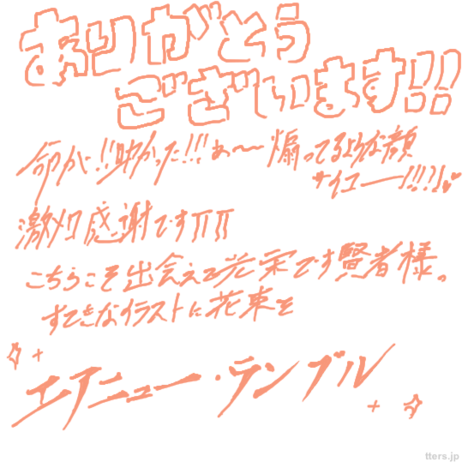 ありがとう
ございます!!
命が!!助かった!!!あ〜〜煽ってるような顔
サイコーー!!!?!♥
激メロ感謝です𝛑𝛑
こちらこそ出会えて光栄です賢者様。
すてきなイラストに花束を
エアニュー・ランブル
tters.jp